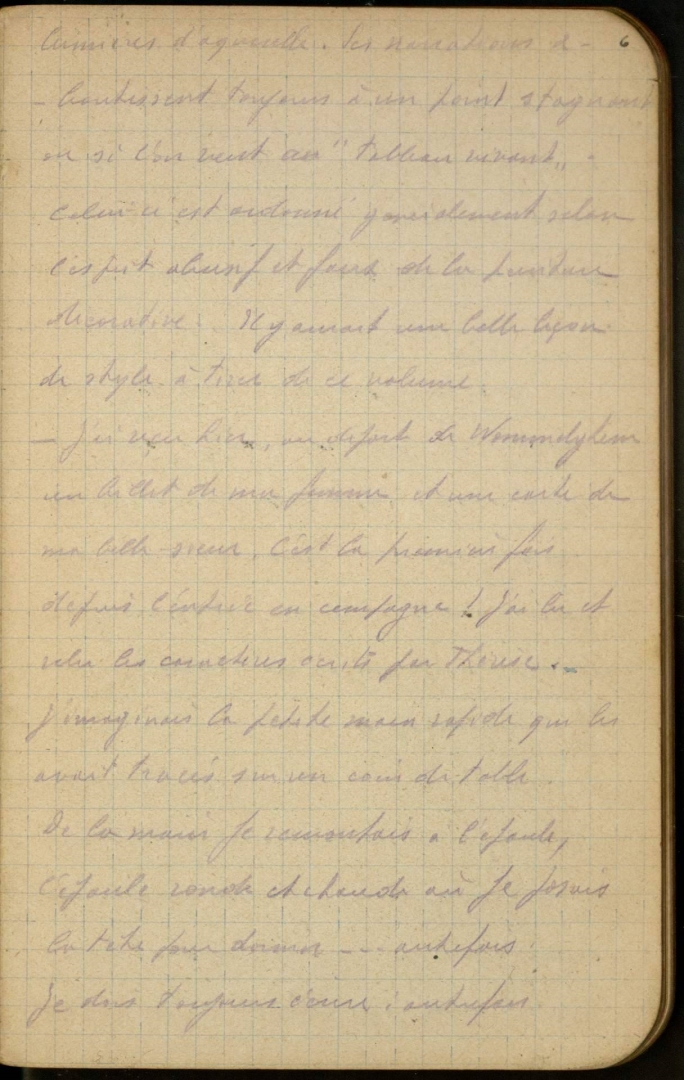 lumières d'aquarelle. Ses narrations a- 6
- boutissent toujours à un point stagnant
ou si l'on veut au "tableau vivant„ -
Celui ci est ordonné généralement selon
l'esprit abusif et faux de la peinture
décorative. Il y aurait une belle leçon
de style à tirer de ce volume.
— J'ai reçu hier, au départ de
un billet de ma femme et une carte de
ma belle-sœur, C'est la première fois
depuis l'entrée en campagne ! J'ai lu et
relu les caractères écrits par Thérèse.
J'imaginais la petite main rapide qui les
avait tracés sur un coin de table.
De la main je remontais à l'épaule,
l'épaule ronde et chaude où je posais
la tête pour dormir --- autrefois.
Je dois toujours écrire : autrefois.